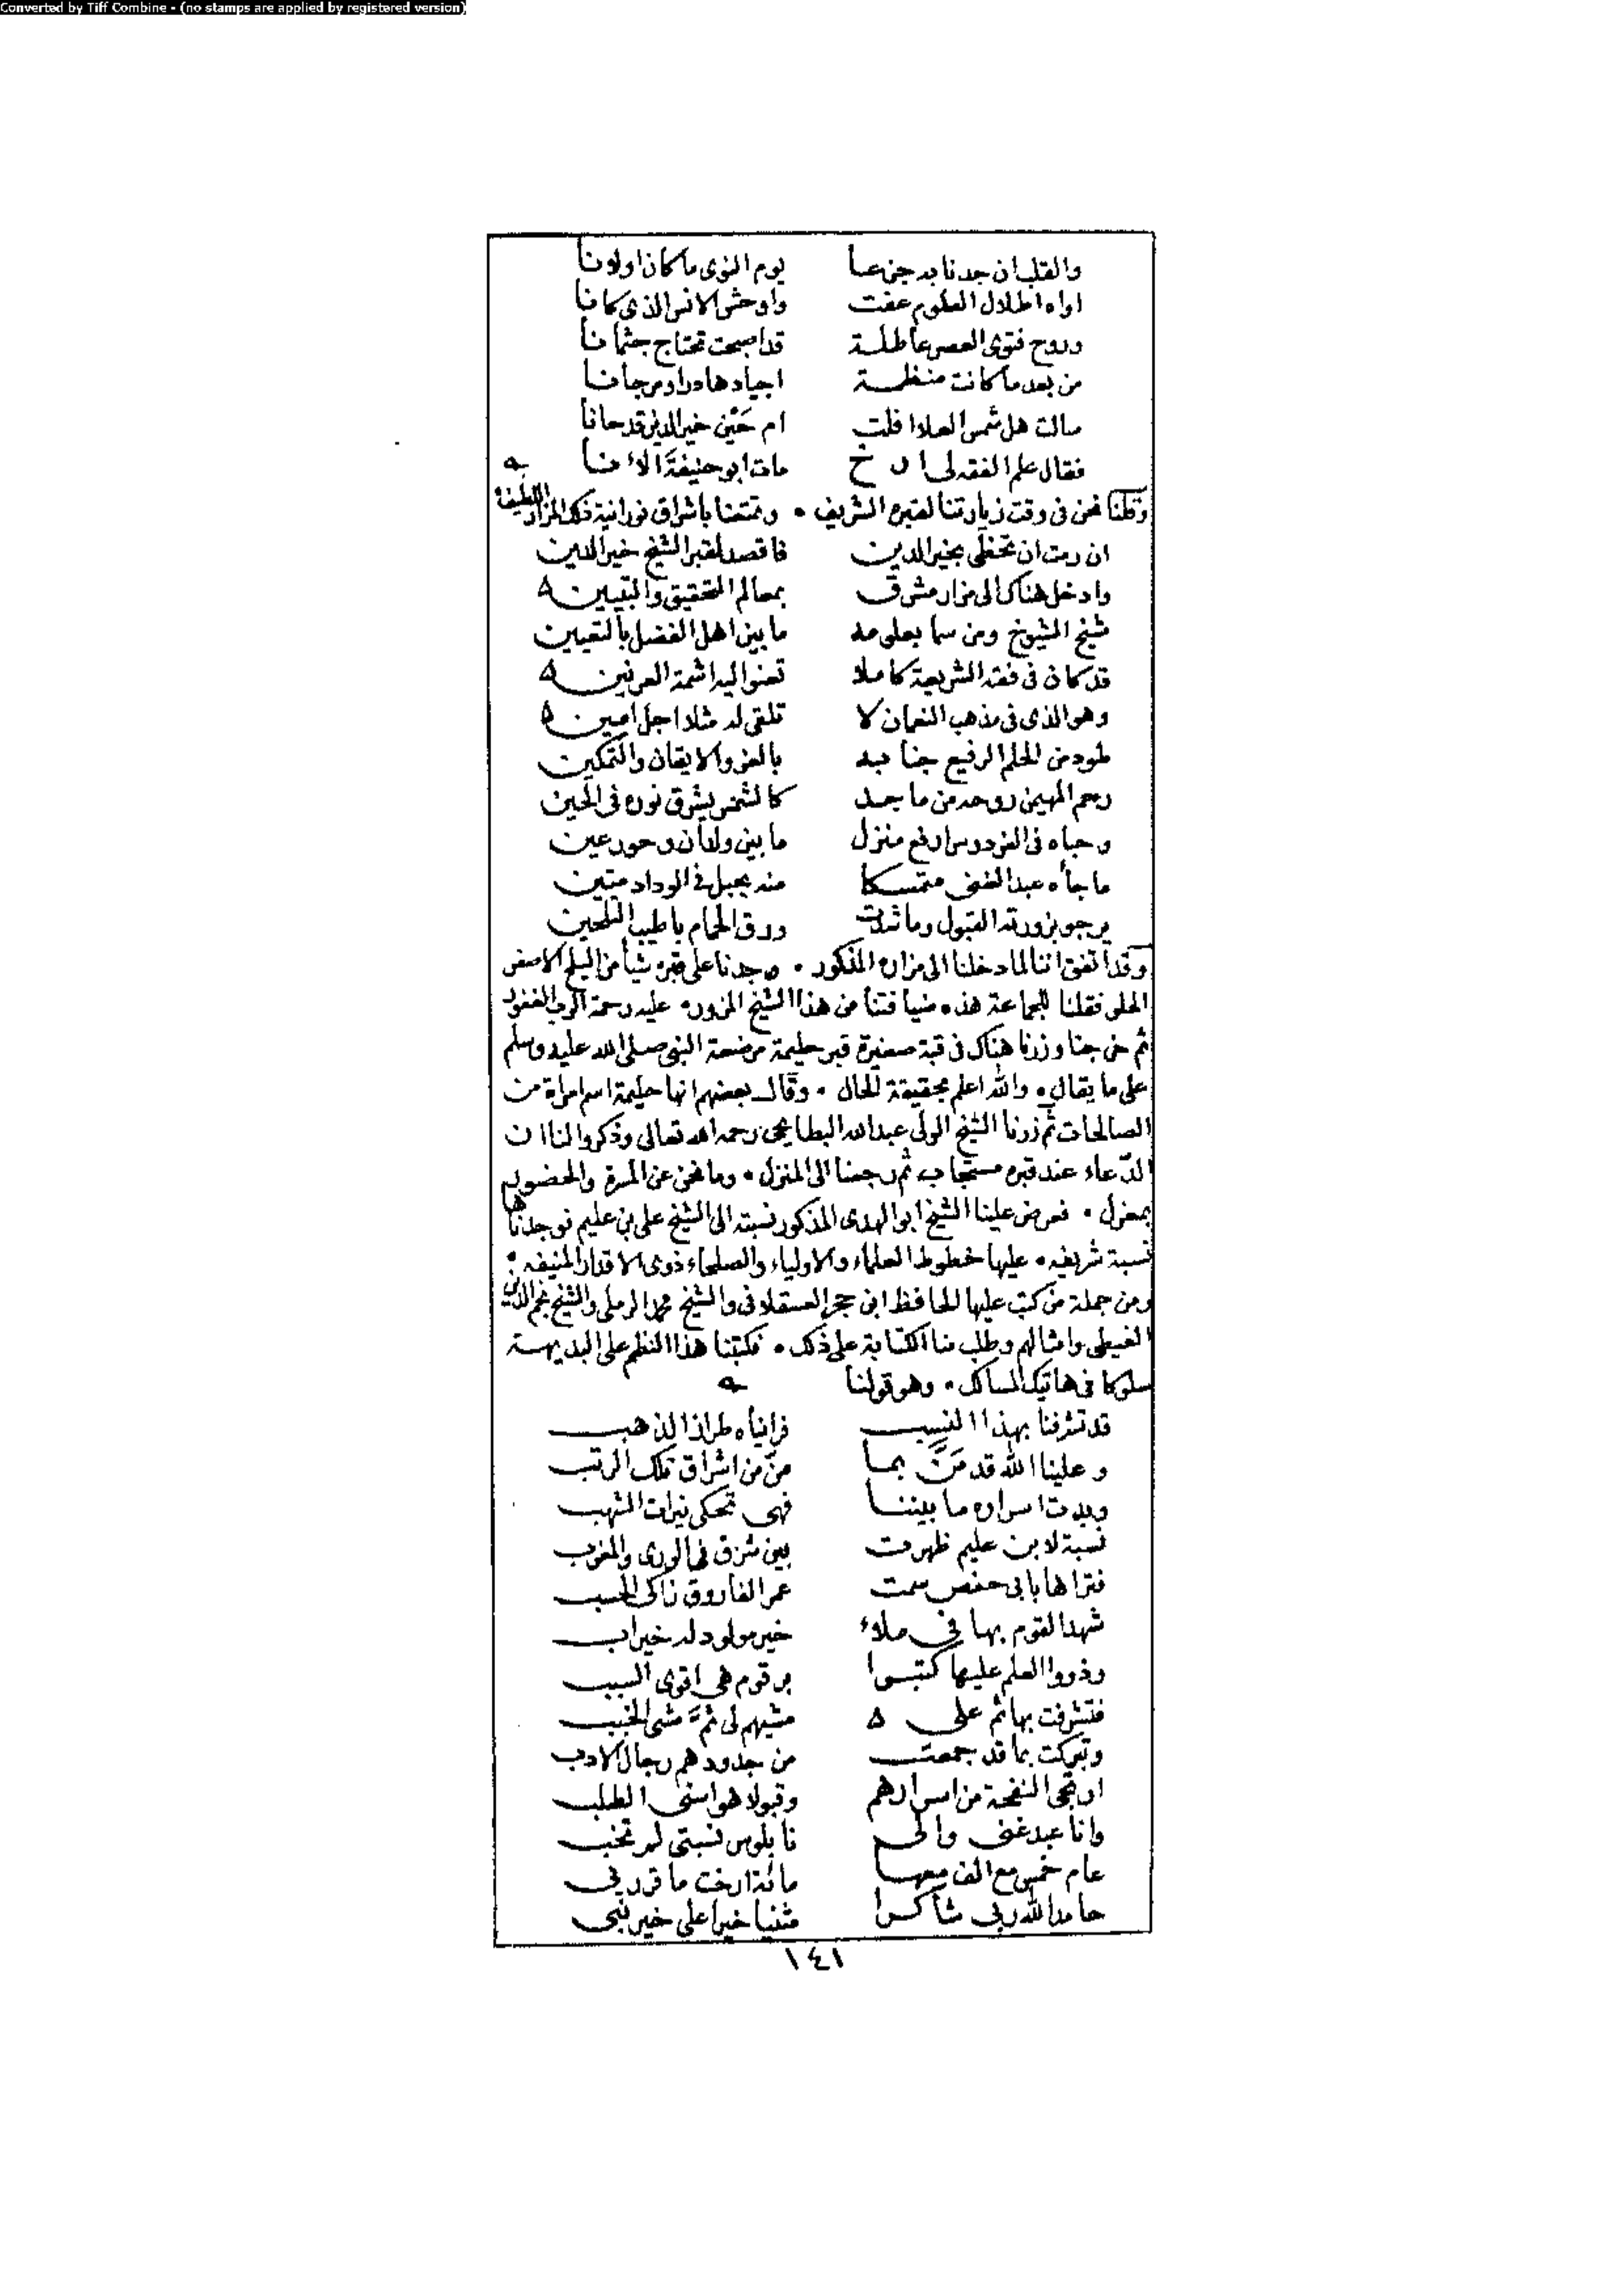 Converted by Tiff Combine - (no stamps are applied by registered version)
والقلب ان جدنا به جزعا يوم النوى ما كان اولانا
اواه اطلال العلوم عفت واوحش الانس الذى كانا
وروح فتوى العصر عاطلة قد اصبحت تحتاج جثمانا
من بعد ما كانت منظمة اجيادها درا ومرجانا
سالت هل شمس العلا افلت ام حَيْن خير الدين قد حانا
فقال علم الفقه لى ارخ مات ابو حنيفةَ الآنا
وقلنا نحن فى وقت زيارتنا لقبره الشريف • وتمتعنا باشراق نورانية ذلك المزار اللطيف
ان رمت ان تحظى بخير الدين فاقصد لقبر الشيخ خير الدين
وادخل هناك الى مزار مشرق بمعالم التحقيق والتبيين
شيخ الشيوخ ومن سما بعلومه ما بين اهل الفضل بالتعيين
قد كان فى فقه الشريعة كاملا تعنو اليه اشمة العرنين
وهو الذى فى مذهب النعمان لا تلقى له مثلا اجل امين
طود من الحلم الرفيع جنابه بالعز والايقان والتمكين
رحم المهيمن روحه من ماجد كالشمس يشرق نوره فى الحين
وحباه فى الفردوس ارفع منزل ما بين ولدان وحور عين
ما جاءه عبد الغنى متمسكا منه بحبل فى الوداد متين
يرجو بزورته القبول وما شدت ورق الحمام باطيب التلحين
وقد اتفق اننا لما دخلنا الى مزاره المذكور • وجدنا على قبره شيأ من البلح الاصفر
الحلو فقلنا للجماعة هذه ضيافتنا من هذا الشيخ المزور • عليه رحمة الرب الغفور
ثم خرجنا وزرنا هناك فى قبة صغيرة قبر حليمة مرضعة النبى صلى الله عليه وسلم
على ما يقال • والله اعلم بحقيقة الحال • وقال بعضهم انها حليمة اسم امراة من
الصالحات ثم زرنا الشيخ الولى عبد الله البطايحى رحمه الله تعالى وذكروا لنا ان
الدّعاء عند قبره مستجاب ثم رجعنا الى المنزل • وما نحن عن المسرة والحضور
بمعزل • فعرض علينا الشيخ ابو الهدى المذكور نسبته الى الشيخ على بن عليم فوجدناها
نسبة شريفه • عليها خطوط العلماء والاولياء والصلحاء ذوى الاقدار المنيفه •
ومن جملة من كتب عليها الحافظ ابن حجر العسقلانى والشيخ محمد الرملى والشيخ نجم الدين
الغيطى وامثالهم وطلب منا الكتابة على ذلك • فكتبنا هذا النظم على البديهة
سلوكا فى هاتيك المسالك • وهو قولنا
قد تشرفنا بهذا النسب فراَيناه طراز الذهب
وعلينا الله قد مَنَّ بما منّ من اشراق تلك الرتب
وبدت اسراره ما بيننا فهى تحكى نيرات الشهب
نسبة لابن عليم ظهرت بين شرق فى الورى والمغرب
فتراها بابى حفص سمت عمر الفاروق زاكى الحسب
شهد القوم بها فى ملاء خير مولود له خير اب
وذووا العلم عليها كتبوا برقوم هى اقوى السبب
فتشرفت بها ثم على مشيهم لى ثمّ مشى الخبب
وتبركت بما قد جمعت من جدود هم رجال الادب
ارتجى النفحة من اسرارهم وقبولا هو اسنى الطلب
وانا عبد غنى والى نابلوس نسبتى لم تخب
عام خمس مع الف معها مائة ارخت ما قرر بى
حامدا لله ربى شاكرا مثنيا خيرا على خير نبى
١٤١